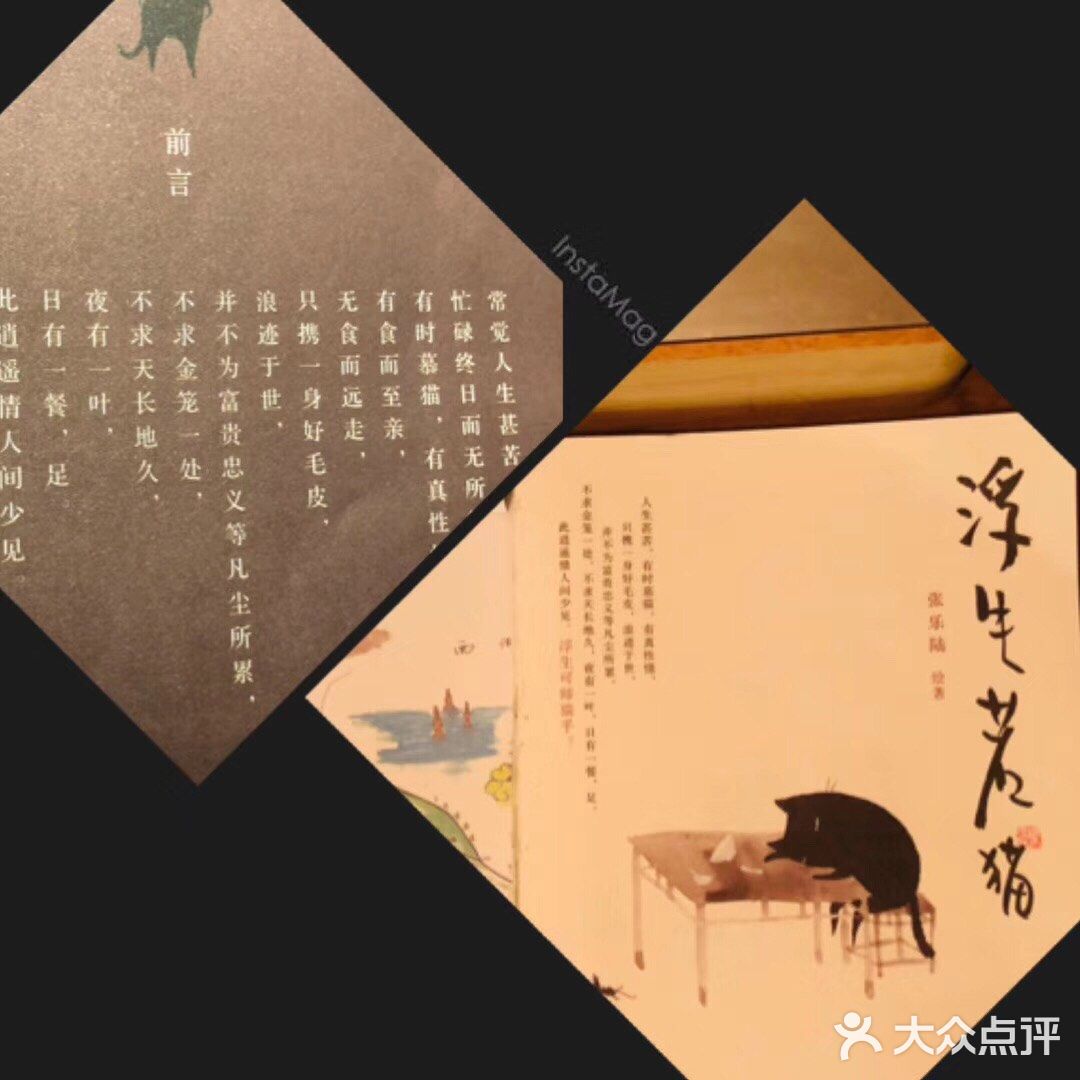 前言
常觉人生甚苦
忙碌终日而无所
有时慕猫，有真性
有食而至亲，
无食而远走，
只携一身好毛皮，
浪迹于世，
并不为富贵忠义等凡尘所累，
不求金笼一处，
不求天长地久，
夜有一叶，
日有一餐，足。
此逍遥情人间少见。
InstaMag
浮生若猫
张乐陆 绘著
人生甚苦，有时慕猫，有真性情，
只携一身好毛皮，浪迹于世，
并不为富贵忠义等凡尘所累。
不求金笼一处，不求天长地久，夜有一叶，日有一餐，足，
此逍遥情人间少见，浮生可师猫乎？
大众点评